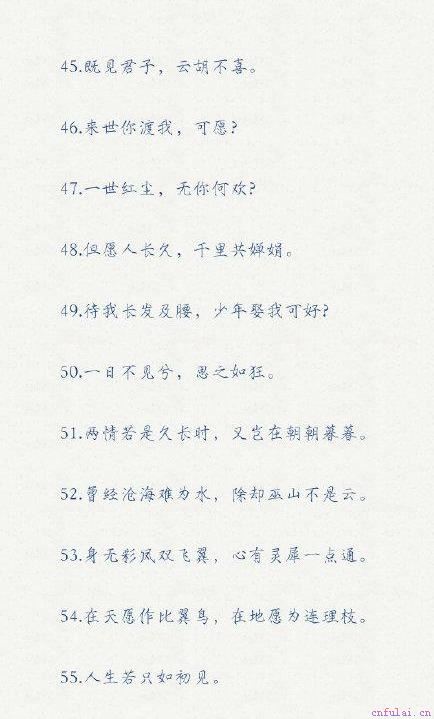 45.既见君子，云胡不喜。
46.来世你渡我，可愿?
47.一世红尘，无你何欢?
48.但愿人长久，千里共婵娟。
49.待我长发及腰，少年娶我可好?
50.一日不见兮，思之如狂。
51.两情若是久长时，又岂在朝朝暮暮。
52.曾经沧海难为水，除却巫山不是云。
53.身无彩凤双飞翼，心有灵犀一点通。
54.在天愿作比翼鸟，在地愿为连理枝。
55.人生若只如初见。
cnfulai.cn